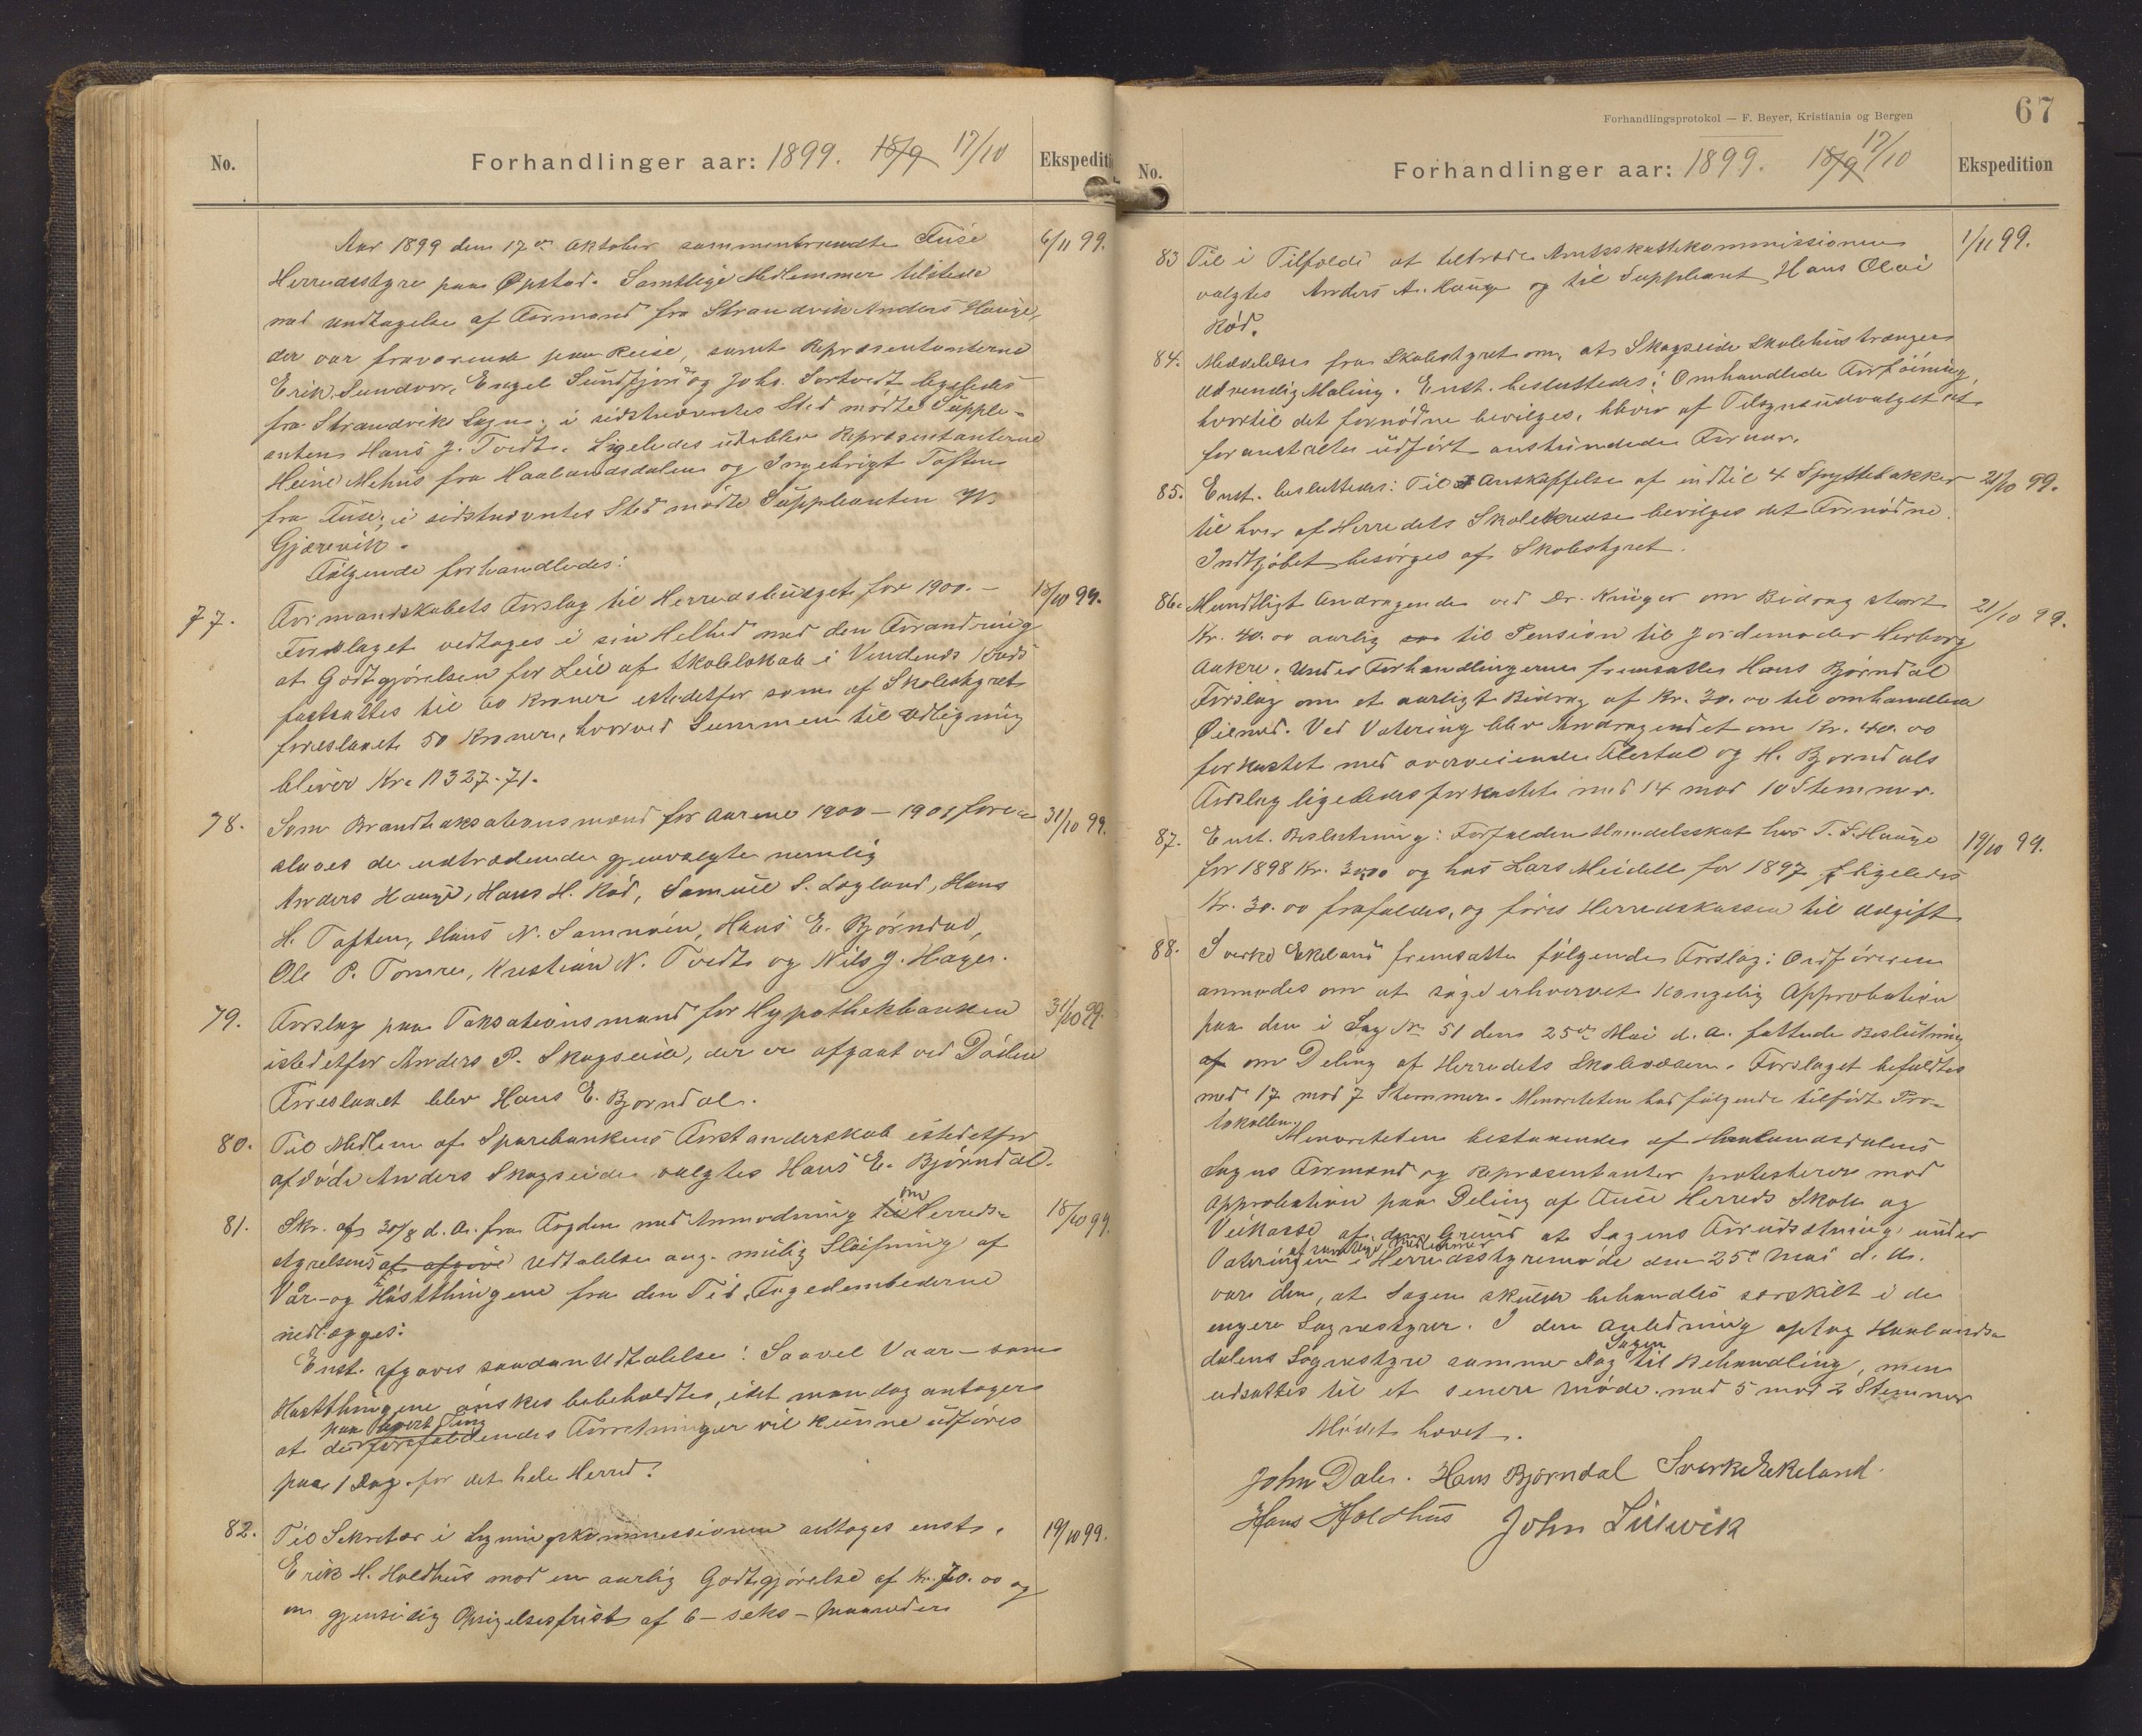 No.
Forhandlinger aar: 1899. 18/9 17/10
Ekspediti
Aar 1899 den 17de Oktober sammentraadte Fuse
6/11 99.
Herredsstyre paa Opstad. Samtlige Medlemmer tilstede
med undtagelse af Formand fra Strandvik Anders Hauge,
der var fraværende paa Reise, samt Repræsentanterne
Erik Sundvor, Engel Sundfjord og Johs. Sortvedt ligeledes
fra Strandviks Sogn; i sidstnævntes Sted mødte Supple-
anten Hans J. Tvedt. Ligeledes udeblev Repræsentanterne
Heine Mehus fra Haalandsdalen og Ingebrigt Toften
fra Fuse; i sidstnævntes Sted mødte Suppleanten
Gjærevik.
Følgende forhandledes:
77.
Formandskabets Forslag til Herredsbudget for 1900. –
18/10 99.
Forslaget vedtages i sin Helhed med den Forandring
at Godtgjørelsen for Leie af Skolelokale i Vindenes Kreds
fastsattes til 60 Kroner istedetfor som af Skolestyret
foreslaaet 50 Kroner, hvorved Summen til Udligning
bliver Kr. 11327.71.
78.
Som Brandtaksationsmænd for Aarene 1900 – 1901 fore-
31/10 99.
slaaes de udtrædende gjenvalgte nemlig
Anders Hauge, Hans H. Kød, Samuel S. Løgland, Hans
H. Toften, Hans N. Samnøen, Hans E. Bjørndal,
Ole P. Tomre, Kristian N. Tvedt og Nils J. Hagen.
79.
Forslag paa Taksationsmand for Hypothekbanken
31/10 99.
istedetfor Anders P. Skogseide, der er afgaat ved Døden
Foreslaaet blev Hans E. Bjørndal.
80.
Til Medlem af Sparebankens Forstanderskab istedetfor
afdøde Anders Skogseide valgtes Hans E. Bjørndal.
81.
Skr. af 30/8 d. A. fra Fogden med Anmodning til om Herreds-
18/10 99.
styrelsens at afgive Udtalelse ang. mulig Sløifning af
Vår- og Høstthingene fra den Tid Fogedembederne
nedlægges.
Enst. afgaves saadan Udtalelse: Saavel Vaar – som
Høstthingene ønskes bibeholdte, idet man dog antager
paa hvert Ting
at de forefaldende Forretninger vil kunne udføres
paa 1 Dag for det hele Herred.
82.
Til Sekretær i Ligningskommissionen antoges enst.
19/10 99.
Erik H. Holdhus mod en aarlig Godtgjørelse af Kr. 70.00 og
en gjensidig Opsigelsesfrist af 6 – seks – Maaneder
67
Forhandlingsprotokol — F. Beyer, Kristiania og Bergen
No.
Forhandlinger aar: 1899. 18/9 17/10
Ekspedition
83
Til i Tilfælde at tiltræde Amtsskattekommissionen
1/11 99.
valgtes Anders A. Hauge og til Suppleant Hans Olai
Kød.
84.
Meddelelse fra Skolestyret om, at Skogseide Skolehus trænger
udvendig Maling. Enst. besluttedes: Omhandlede Forføining,
hvortil det fornødne bevilges, bliver af Tilsynsudvalget at
foranstalte udført anstundende Foraar.
85.
Enst. besluttedes: Til Anskaffelse af indtil 4 Spyttebakker
21/10 99.
til hver af Herredets Skolekredse bevilges det Fornødne.
Indkjøbet besørges af Skolestyret.
86.
Mundtligt Andragende ved Dr. Krüger om Bidrag stort
21/10 99.
Kr. 40.00 aarlig til Pension til Jordemoder Herborg
Aakre. Under Forhandlingerne fremsattes Hans Bjørndal
Forslag om et aarligt Bidrag af Kr. 30.00 til omhandlede
Øiemed. Ved Votering blev Andragendet om Kr. 40.00
forkastet med overveiende Flertal og H. Bjørndals
Forslag ligeledes forkastet med 14 mod 10 Stemmer.
87.
Enst. Beslutning: Forfalden Handelsskat hos T. S. Hauge
19/10 99.
for 1898 Kr. 30.00 og hos Lars Meidell for 1897 ligeledes
Kr. 30.00 frafaldes, og føres Herredskassen til Udgift
88.
Sverke Ekeland fremsatte følgende Forslag: Ordføreren
anmodes om at søge erhvervet Kongelig Approbation
paa den i Sag Nr. 51 den 25de Mai d. A. fattede Beslutning
af om Deling af Herredets Skolevæsen. Forslaget befaldtes
med 17 mod 7 Stemmer. Minoriteten har følgende tilført Pro-
tokollen:
Minoriteten bestaaende af Haalandsdalens
Sogns Formænd og Repræsentanter protesterer mod
Approbation paa Deling af Fuse Herreds Skole og
Veikasse af den Grund at Sagens Forudsætning under
af samtlige Medlemmer
Voteringen i Herredsstyremøde den 25de Mai d. A.
var den, at Sagen skulde behandles særskilt i de
engere Sognestyrer. I den Anledning optog Haalands-
Sagen
dalens Sognestyre samme Dag til Behandling, men
udsattes til et senere Møde med 5 mod 2 Stemmer
Mødet hævet.
John Dale. Hans Bjørndal Sverke Ekeland.
Hans Holdhus John Lilevik